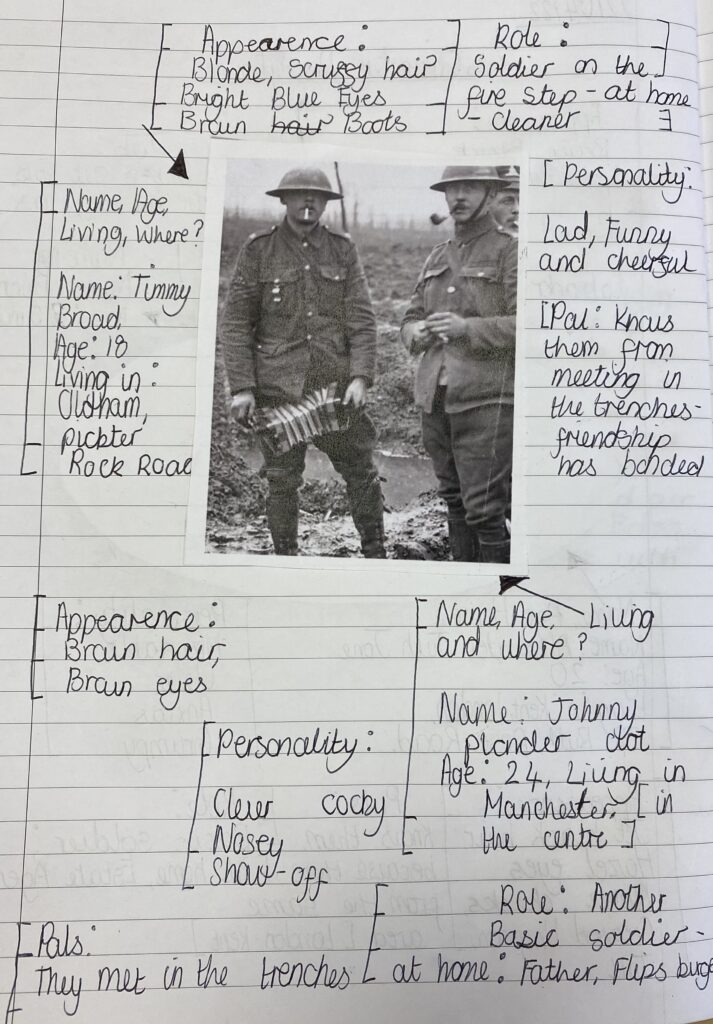 Appearence:
Blonde, scruffy hair
Bright Blue Eyes
Braun hair Boots
Role:
Soldier on the
fire step - at home
- cleaner
Name, Age,
Living, Where?
Name: Timmy
Broad,
Age: 18
Living in:
Oldham,
pickter
Rock Road
Personality:
Lad, Funny
and cheerful
Pal: Knows
them from
meeting in
the trenches -
friendship
has bonded
Appearence:
Braun hair,
Braun eyes
Name, Age, Living
and where?
Name: Johnny
plonder dot
Age: 24, Living in
Manchester, [in
the centre]
Personality:
Clever cocky
Nosey
Show-off
Role: Another
Basic soldier -
at home: Father, Flips burg
Pals:
They met in the trenches